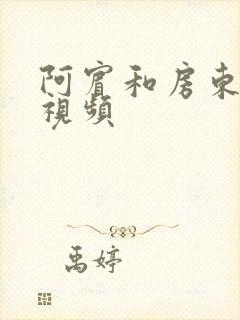 阿賓和房東
視頻
禹婷